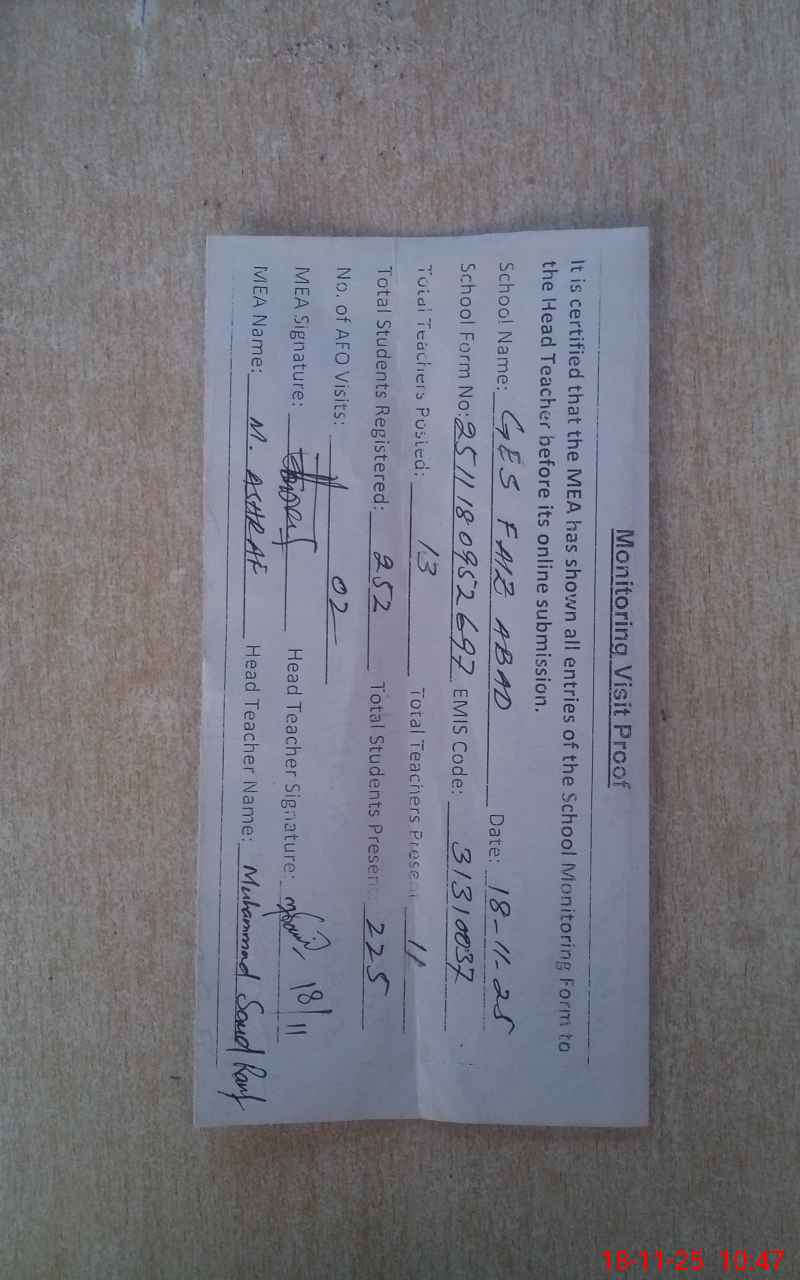 Monitoring Visit Proof
It is certified that the MEA has shown all entries of the School Monitoring Form to
the Head Teacher before its online submission.
School Name: GES FAIZ ABAD Date: 18-11-25
School Form No: 2511180952697 EMIS Code: 31310037
Total Teachers Posted: 13 Total Teachers Present 11
Total Students Registered: 252 Total Students Present 225
No. of AFO Visits: 02
MEA Signature: Head Teacher Signature: 18/11
MEA Name: M. ASHRAF Head Teacher Name: Muhammad Saud Rauf
18-11-25 10:47